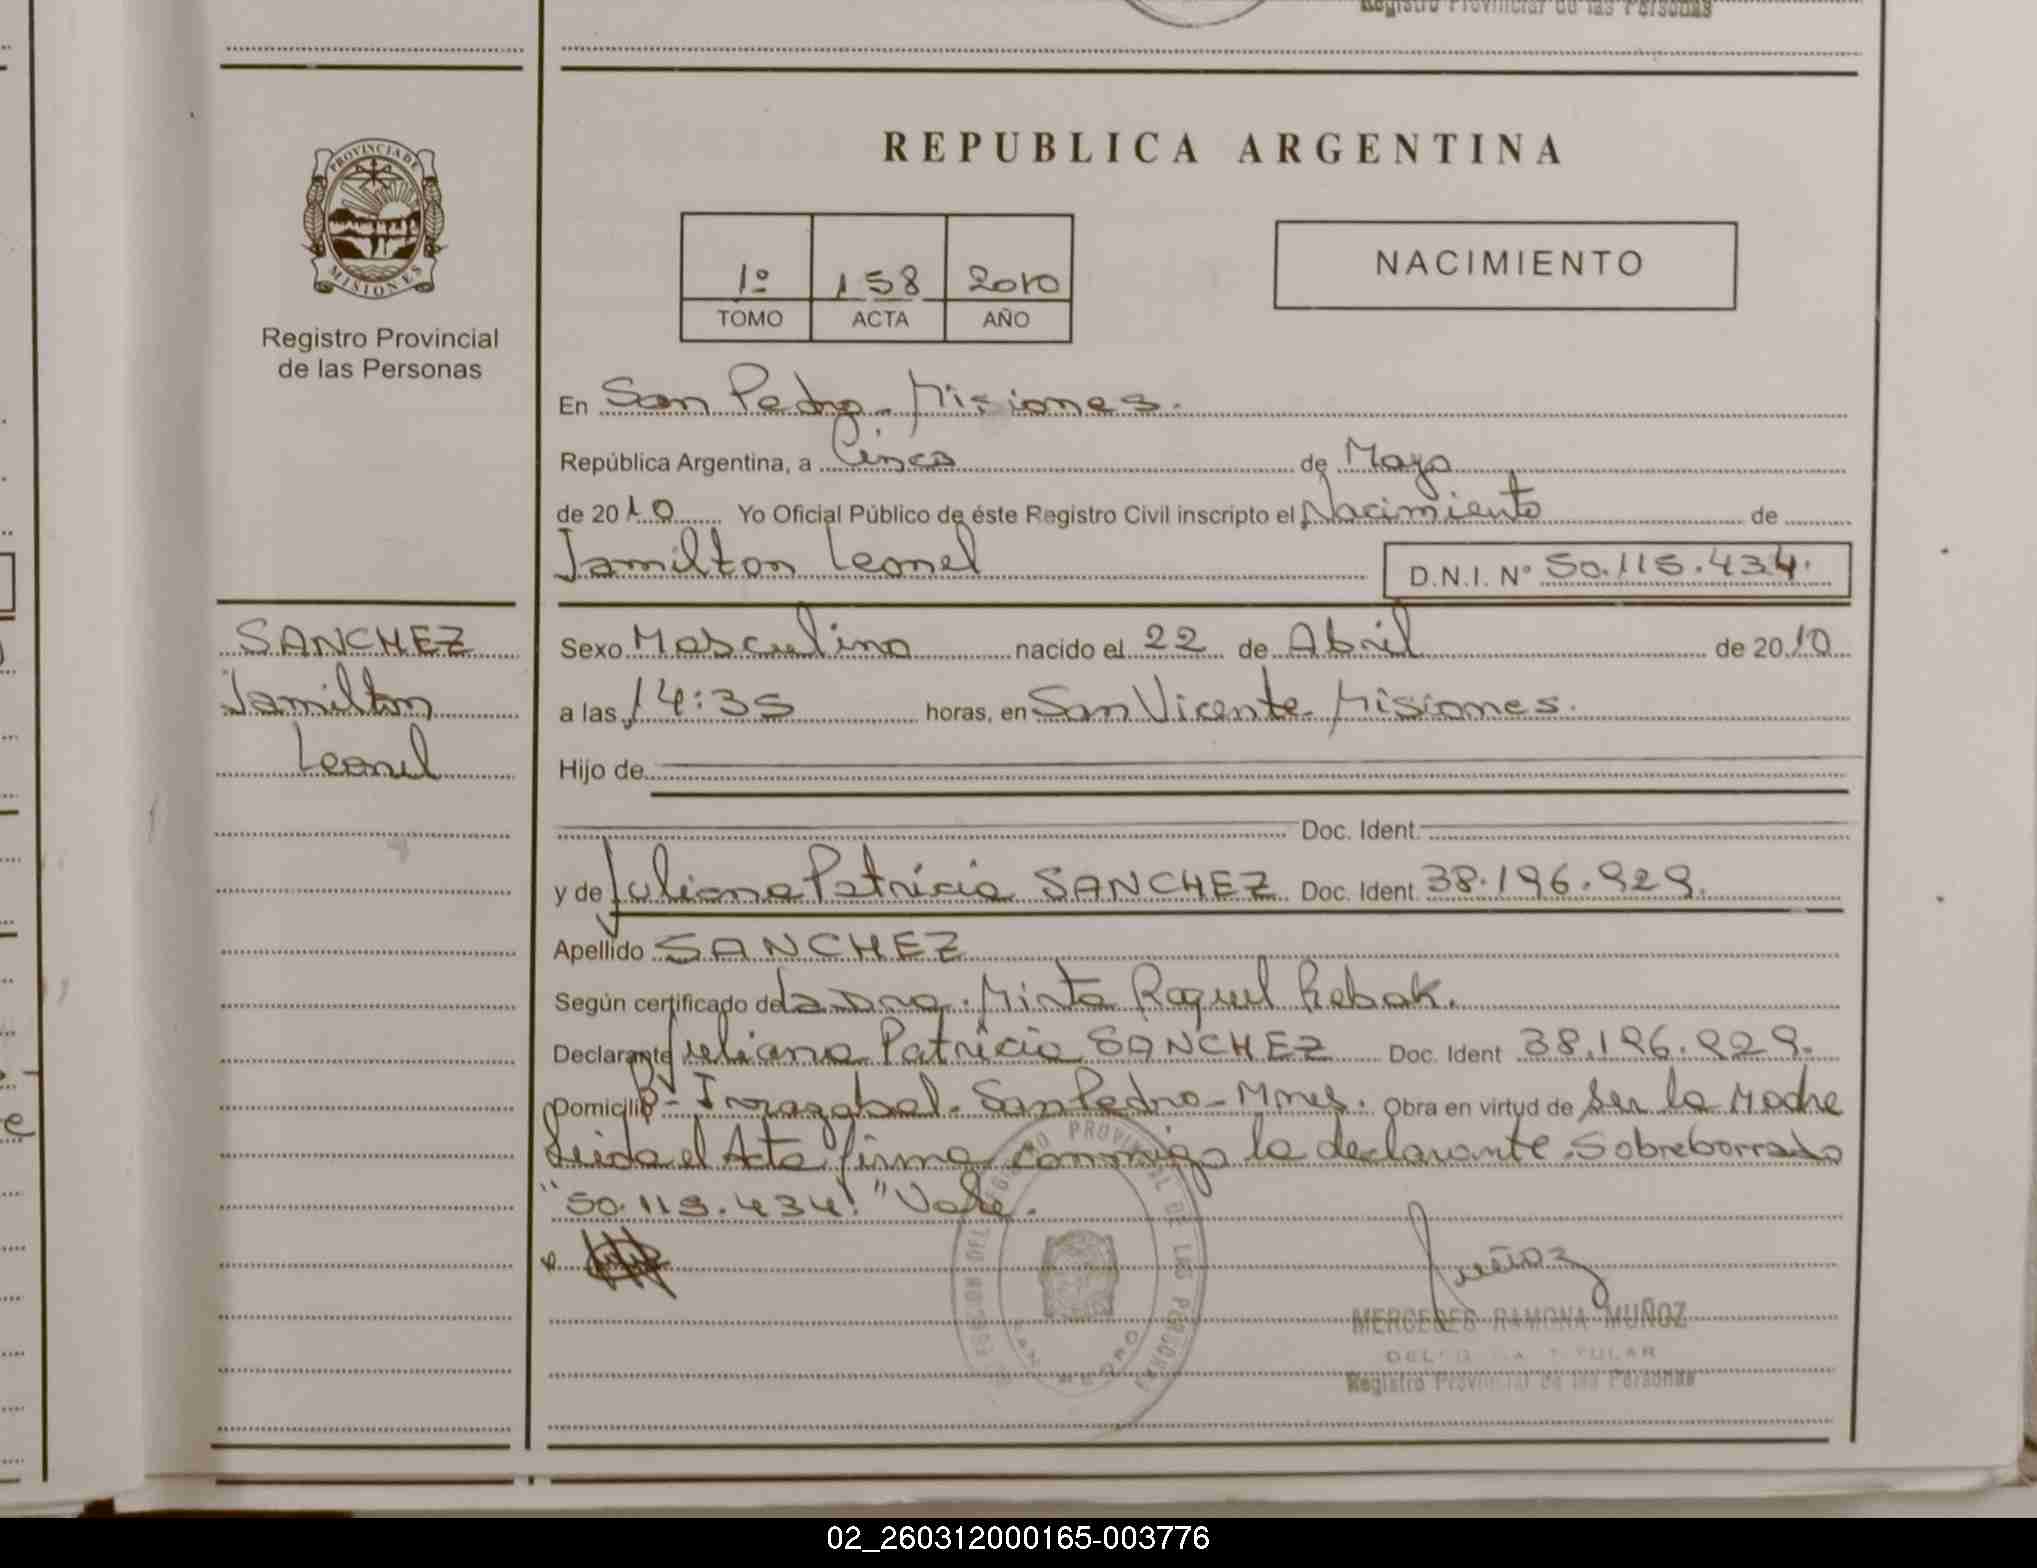 Registro Provincial de las Personas
REPUBLICA ARGENTINA
PROVINCIA DE
MISIONES
Registro Provincial
de las Personas
1º 158 2010
TOMO ACTA AÑO
NACIMIENTO
En San Pedro - Misiones.
República Argentina, a Cinco de Mayo
de 2010 Yo Oficial Público de éste Registro Civil inscripto el Nacimiento de
Jamilton Leonel D.N.I. N° 50.115.434.
SANCHEZ
Jamilton
Leonel
Sexo Masculino nacido el 22 de Abril de 2010
a las 14:35 horas, en San Vicente - Misiones.
Hijo de
Doc. Ident.
y de Juliana Patricia SANCHEZ Doc. Ident. 38.196.929.
Apellido SANCHEZ
Según certificado de la Mirta Raquel Rebak.
Declarante Juliana Patricia SANCHEZ Doc. Ident 38.196.929.
Domicilio Irazabal - San Pedro - Mnes. Obra en virtud de Ser la Madre
Leida el Acta firma conmigo la declarante. Sobreborrado
"50.115.434." Vale.
Muñoz
REGISTRO PROVINCIAL DE LAS PERSONAS
SAN PEDRO
MERCEDES RAMONA MUÑOZ
DELEGADA TITULAR
Registro Provincial de las Personas
02_260312000165-003776